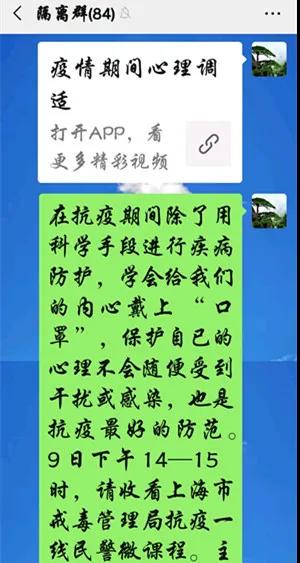 隔离群(84)
疫情期间心理调
适
打开APP，看
更多精彩视频
在抗疫期间除了用
科学手段进行疾病
防护，学会给我们
的内心戴上“口
罩”，保护自己的
心理不会随便受到
干扰或感染，也是
抗疫最好的防范。
9日下午14—15
时，请收看上海市
戒毒管理局抗疫一
线民警微课程。主